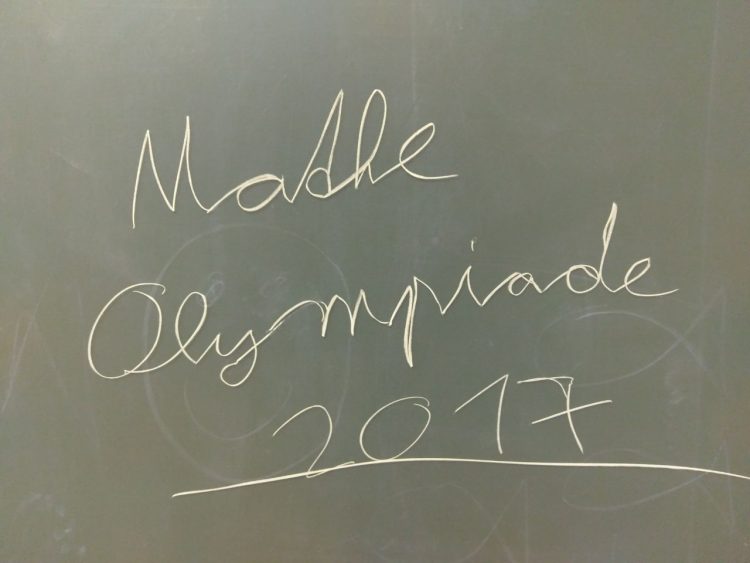 Mathe
Olympiade
2017